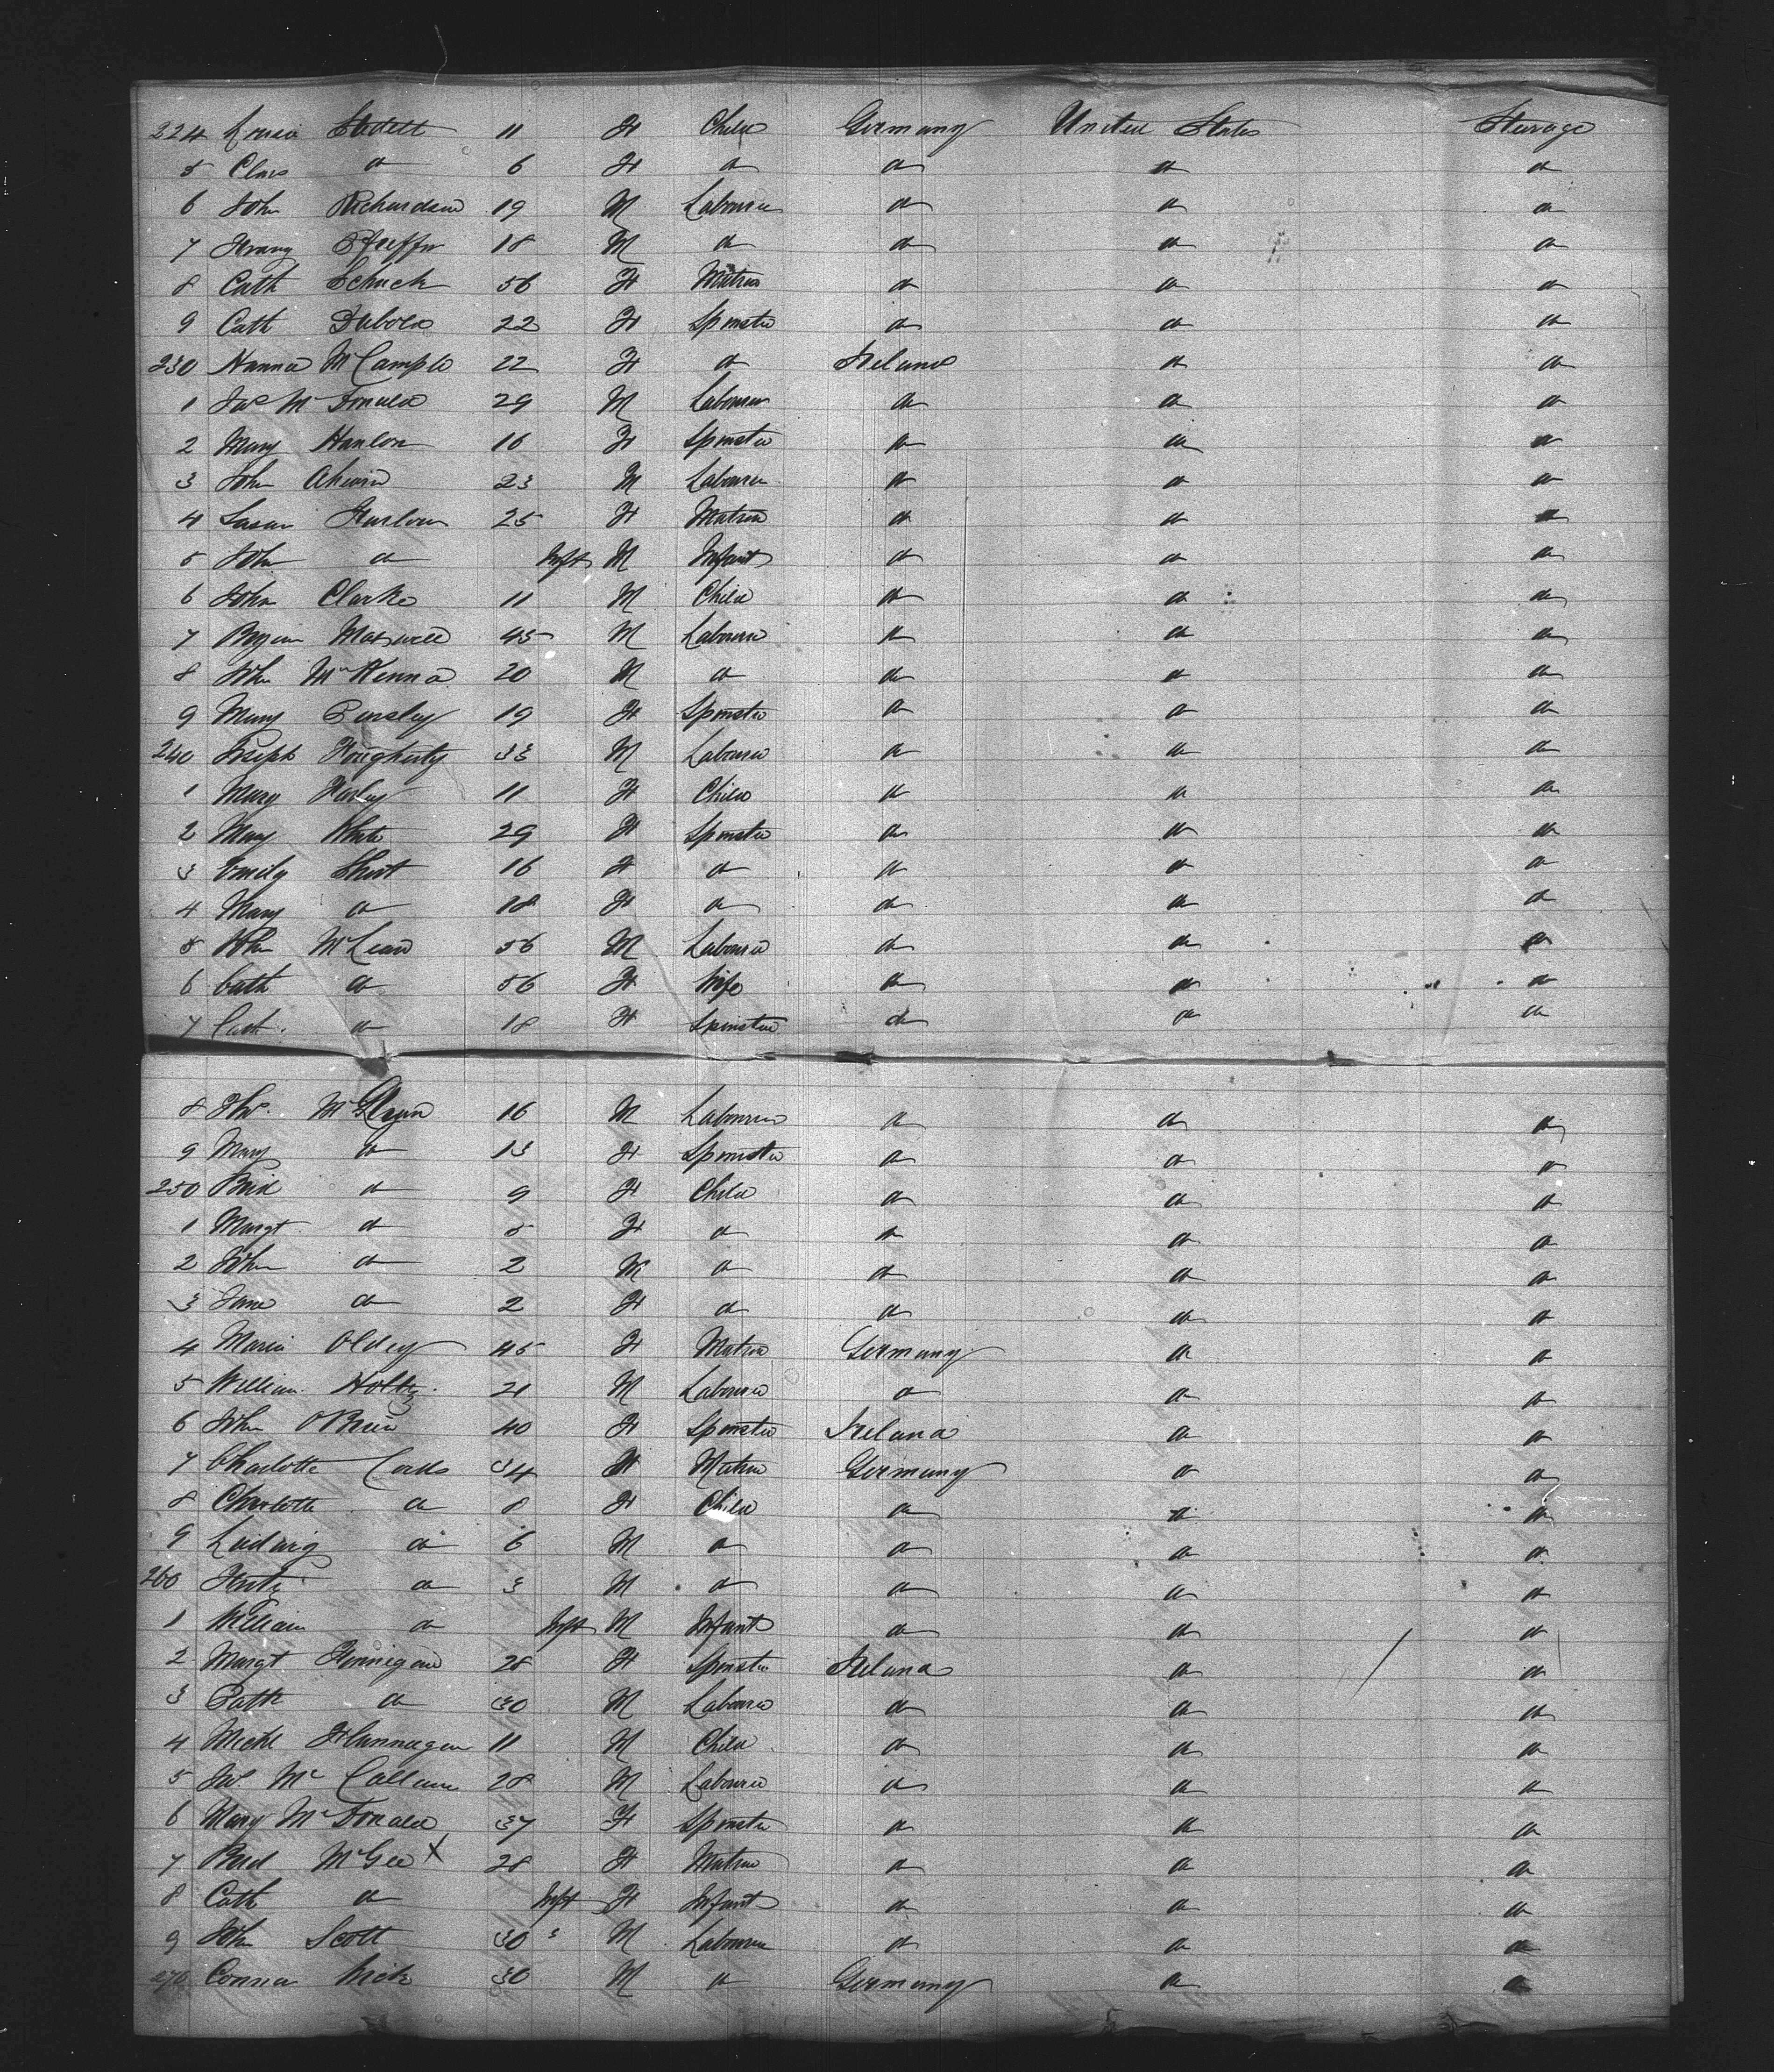 224 Louisa Stadelt 11 F Child Germany United States Steerage
5 Clara do 6 F do do do do
6 John Richardson 19 M Labourer do do do
7 Franz Pfeffer 18 M do do do do
8 Cath Schuck 56 F Matron do do do
9 Cath 22 F Spinster do do do
230 Hanna McCample 22 F do Ireland do do
1 Jas McDonald 29 M Labourer do do do
2 Mary Hanlon 16 F Spinster do do do
3 John Ahearn 23 M Labourer do do do
4 Susan Furlow 25 F Matron do do do
5 John do Inft M Infant do do do
6 John Clarke 11 M Child do do do
7 Bryan Maxwell 45 M Labourer do do do
8 John McKenna 20 M do do do do
9 Mary 19 F Spinster do do do
240 Joseph Dougherty 33 M Labourer do do do
1 Mary Farley 11 F Child do do do
2 Mary White 29 F Spinster do do do
3 Emily Short 16 F do do do do
4 Mary do 18 F do do do do
5 John McLean 56 M Labourer do do do
6 Cath do 56 F Wife do do do
7 Cath. do 18 F Spinster do do do
8 Thos. 16 M Labourer do do do
9 Mary do 13 F Spinster do do do
250 Brid do 9 F Child do do do
1 Margt do 5 F do do do do
2 John do 2 M do do do do
3 Jane do 2 F do do do do
4 Maria Oldey 45 F Matron Germany do do
5 William Holtz 21 M Labourer do do do
6 John O'Brien 40 F Spinster Ireland do do
7 Charlotte Cords 34 F Matron Germany do do
8 Charlotte do 8 F Child do do do
9 Ludwig do 6 M do do do do
260 Fritz do 3 M do do do do
1 William do Inft M Infant do do do
2 Margt Finnigan 28 F Spinster Ireland do do
3 Patk do 30 M Labourer do do do
4 Michl Flannagan 11 M Child do do do
5 Jas. McCallum 28 M Labourer do do do
6 Mary McDonald 37 F Spinster do do do
7 Brid McGee X 28 F Matron do do do
8 Cath do Inft F Infant do do do
9 John Scott 30 M Labourer do do do
270 30 M do Germany do do